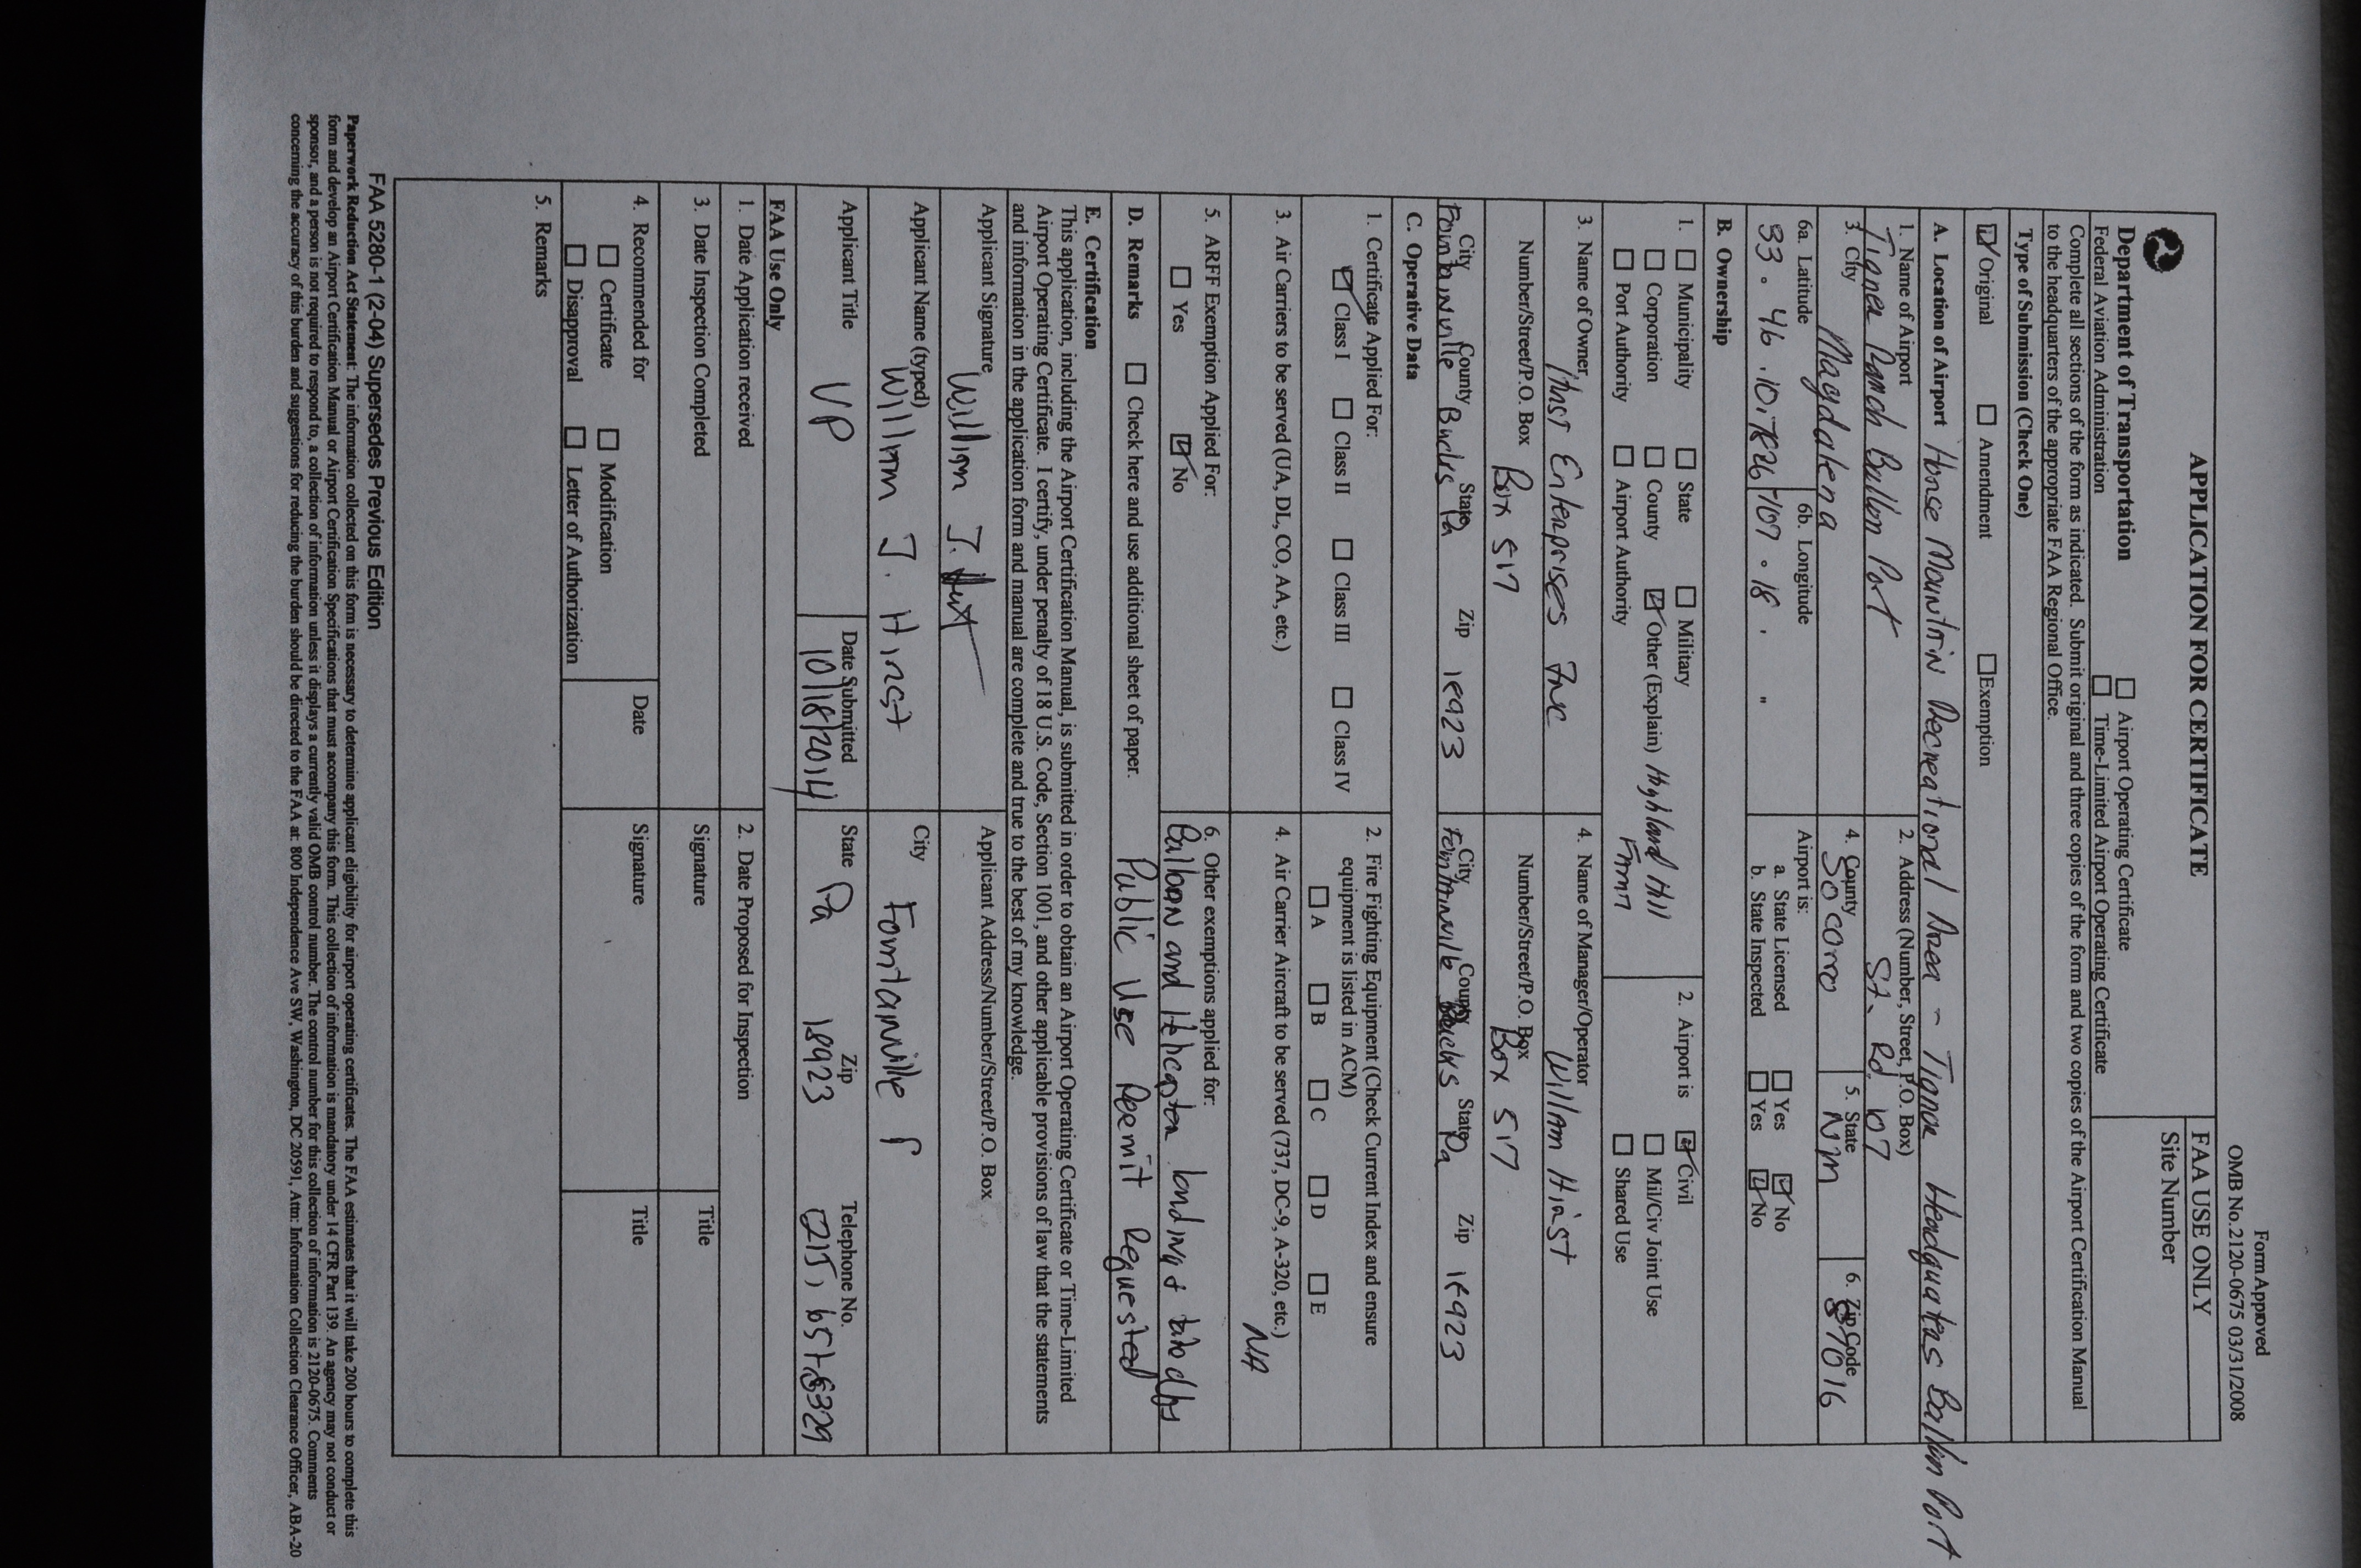 Form Approved
OMB No.2120-0675 03/31/2008
APPLICATION FOR CERTIFICATE
FAA USE ONLY
Site Number
Department of Transportation
Federal Aviation Administration
☐ Airport Operating Certificate
☐ Time-Limited Airport Operating Certificate
Complete all sections of the form as indicated. Submit original and three copies of the form and two copies of the Airport Certification Manual
to the headquarters of the appropriate FAA Regional Office.
Type of Submission (Check One)
☑ Original ☐ Amendment ☐ Exemption
A. Location of Airport Horse Mountin Recreational Area - Tigner Headquaters Ballon Port
1. Name of Airport
Tigner Ranch Ballon Port
2. Address (Number, Street, P.O. Box)
St. Rd 107
3. City
Magdalena
4. County
Socorro
5. State
NM
6. Zip Code
87016
6a. Latitude
33 . 46 . 10.7826
6b. Longitude
107 . 18 . "
Airport is:
a. State Licensed ☐ Yes ☑ No
b. State Inspected ☐ Yes ☑ No
B. Ownership
1. ☐ Municipality ☐ State ☐ Military
☐ Corporation ☐ County ☑ Other (Explain) Highland Hill
Farm
☐ Port Authority ☐ Airport Authority
2. Airport is ☑ Civil
☐ Mil/Civ Joint Use
☐ Shared Use
3. Name of Owner
Hirst Enterprises Inc
4. Name of Manager/Operator
Willam Hirst
Number/Street/P.O. Box
Box 517
Number/Street/P.O. Box
Box 517
City County State Zip
Fountainville Bucks Pa 18923
City County State Zip
Fountainville Bucks Pa 18923
C. Operative Data
1. Certificate Applied For:
☑ Class I ☐ Class II ☐ Class III ☐ Class IV
2. Fire Fighting Equipment (Check Current Index and ensure
equipment is listed in ACM)
☐ A ☐ B ☐ C ☐ D ☐ E
3. Air Carriers to be served (UA, DL, CO, AA, etc.)
4. Air Carrier Aircraft to be served (737, DC-9, A-320, etc.)
NA
5. ARFF Exemption Applied For:
☐ Yes ☑ No
6. Other exemptions applied for:
Balloon and landing +
D. Remarks ☐ Check here and use additional sheet of paper.
Public Use Permit Requested
E. Certification
This application, including the Airport Certification Manual, is submitted in order to obtain an Airport Operating Certificate or Time-Limited
Airport Operating Certificate. I certify, under penalty of 18 U.S. Code, Section 1001, and other applicable provisions of law that the statements
and information in the application form and manual are complete and true to the best of my knowledge.
Applicant Signature
William J. Hirst
Applicant Address/Number/Street/P.O. Box
Applicant Name (typed)
William J. Hirst
City
Fountainville P
Applicant Title
VP
Date Submitted
10/18/2014
State
Pa
Zip
18923
Telephone No.
(215) 651-8329
FAA Use Only
1. Date Application received
2. Date Proposed for Inspection
3. Date Inspection Completed
Signature
Title
4. Recommended for
☐ Certificate ☐ Modification
☐ Disapproval ☐ Letter of Authorization
Date
Signature
Title
5. Remarks
FAA 5280-1 (2-04) Supersedes Previous Edition
Paperwork Reduction Act Statement: The information collected on this form is necessary to determine applicant eligibility for airport operating certificates. The FAA estimates that it will take 200 hours to complete this
form and develop an Airport Certification Manual or Airport Certification Specifications that must accompany this form. This collection of information is mandatory under 14 CFR Part 139. An agency may not conduct or
sponsor, and a person is not required to respond to, a collection of information unless it displays a currently valid OMB control number. The control number for this collection of information is 2120-0675. Comments
concerning the accuracy of this burden and suggestions for reducing the burden should be directed to the FAA at: 800 Independence Ave SW, Washington, DC 20591, Attn: Information Collection Clearance Officer, ABA-20